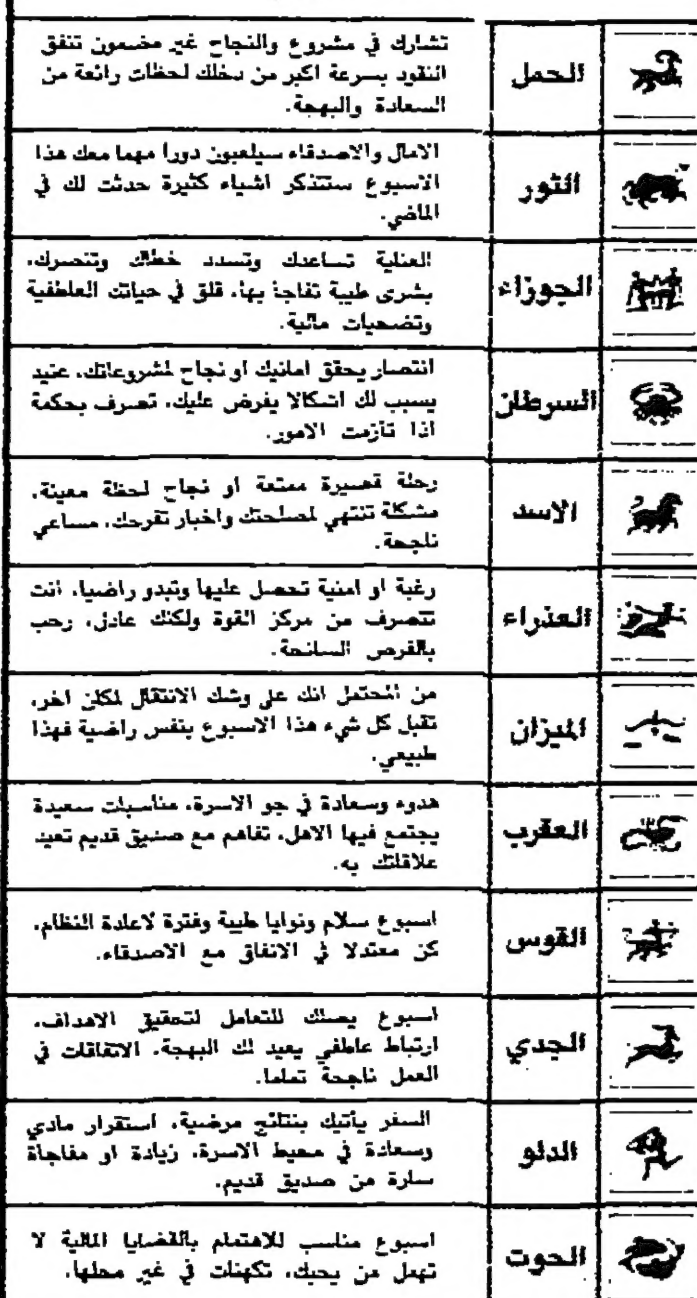 الحمل
تشارك في مشروع والنجاح غير مضمون تنفق
النقود بسرعة اكبر من دخلك لحظات رائعة من
السعادة والبهجة.
الثور
الامال والاصدقاء سيلعبون دورا مهما معك هذا
الاسبوع ستتذكر اشياء كثيرة حدثت لك في
الماضي.
الجوزاء
العناية تساعدك وتسدد خطاك وتنصرك،
بشرى طيبة تفاجأ بها، قلق في حياتك العاطفية
وتضحيات مالية.
السرطان
انتصار يحقق امانيك او نجاح لمشروعاتك، عنيد
يسبب لك اشكالا يفرض عليك، تصرف بحكمة
اذا تأزمت الامور.
الاسد
رحلة قصيرة ممتعة او نجاح لحظة معينة،
مشكلة تنتهي لمصلحتك واخبار تفرحك، مساعي
ناجحة.
العذراء
رغبة او امنية تحصل عليها وتبدو راضيا، انت
تتصرف من مركز القوة ولكنك عادل، رحب
بالفرص السانحة.
الميزان
من المحتمل انك على وشك الانتقال لمكان اخر،
تقبل كل شيء هذا الاسبوع بنفس راضية فهذا
طبيعي.
العقرب
هدوء وسعادة في جو الاسرة، مناسبات سعيدة
يجتمع فيها الاهل، تفاهم مع صديق قديم تعيد
علاقاتك به.
القوس
اسبوع سلام ونوايا طيبة وفترة لاعادة النظام،
كن معتدلا في الانفاق مع الاصدقاء.
الجدي
اسبوع يصلك للتعامل لتحقيق الاهداف،
ارتباط عاطفي يعيد لك البهجة، الاتفاقات في
العمل ناجحة تماما.
الدلو
السفر يأتيك بنتائج مرضية، استقرار مادي
وسعادة في محيط الاسرة، زيادة او مفاجأة
سارة من صديق قديم.
الحوت
اسبوع مناسب للاهتمام بالقضايا المالية لا
تهمل من يحبك، تكهنات في غير محلها.